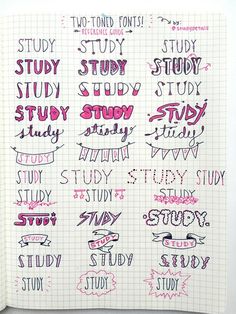 TWO-TONED FONTS!
REFERENCE GUIDE
by:
STUDY STUDY STUDY
STUDY STUDY STUDY
STUDY STUDY STUDY
STUDY STUDY STUDY
study study study
STUDY
STUDY STUDY STUDY STUDY
STUDY STUDY STUDY
STUDY STUDY STUDY.
STUDY STUDY STUDY
STUDY STUDY STUDY
STUDY STUDY STUDY